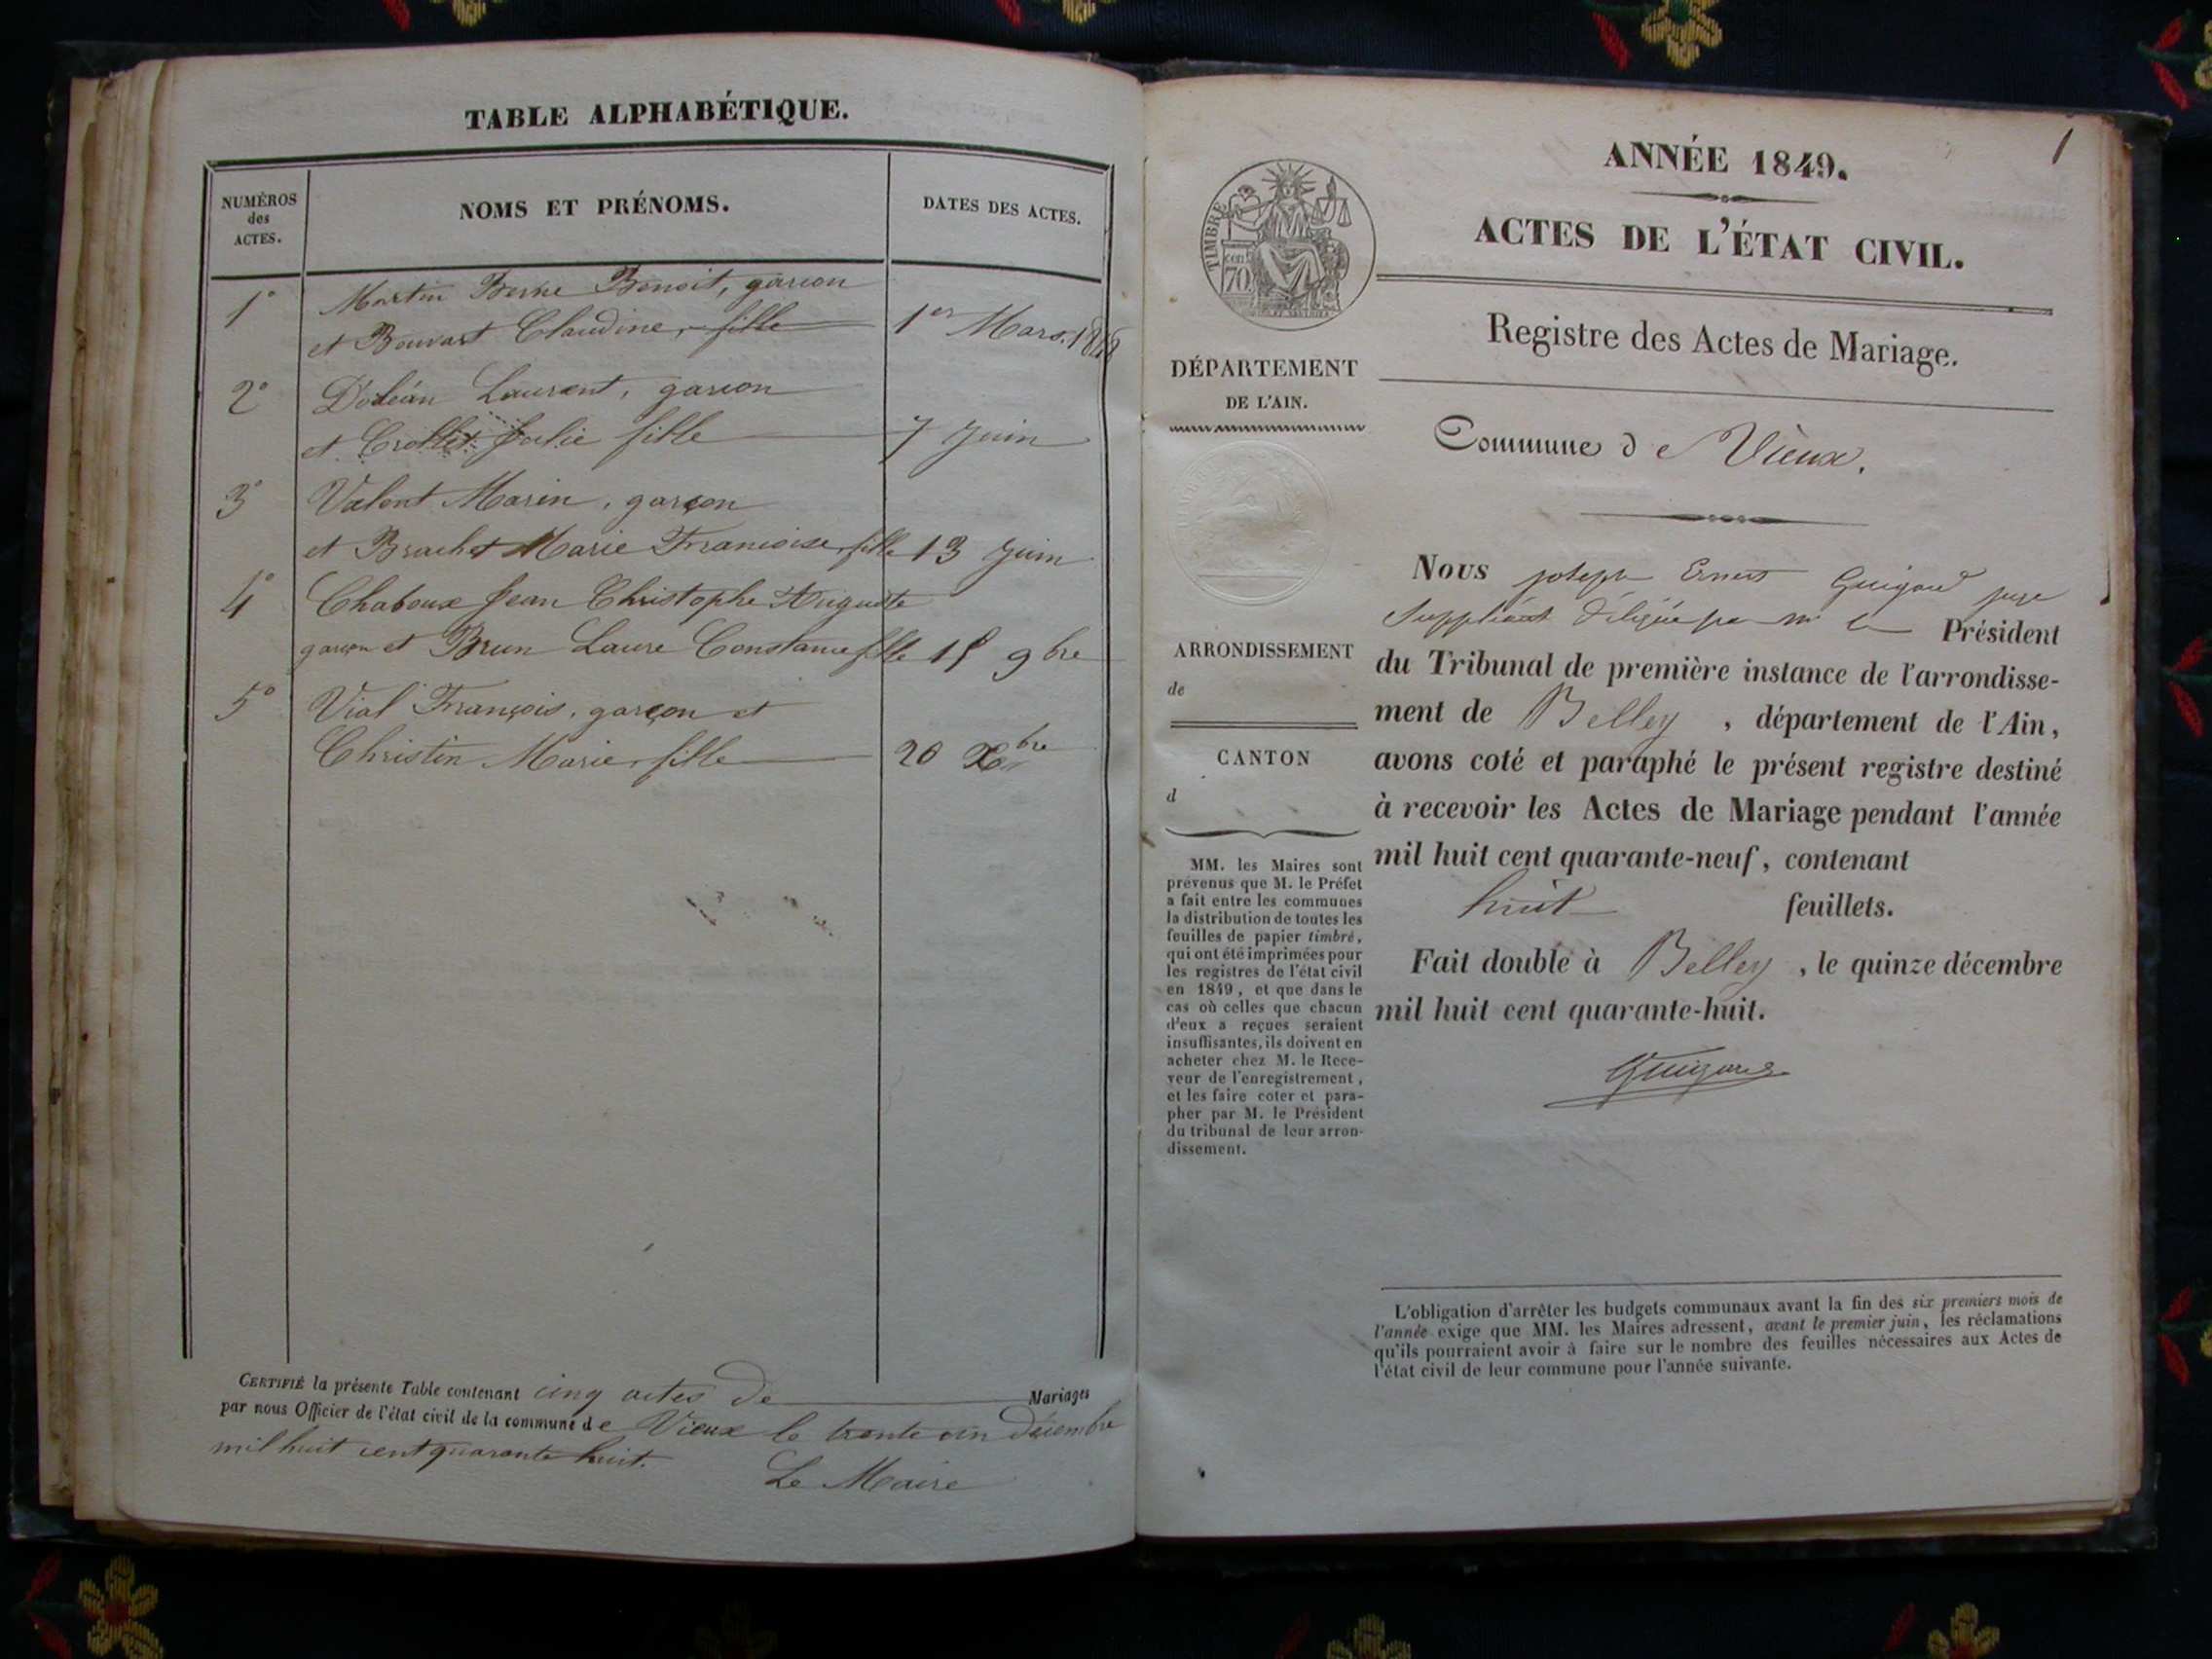 TABLE ALPHABÉTIQUE.
NUMÉROS
des
ACTES.
NOMS ET PRÉNOMS.
DATES DES ACTES.
1° Martin Benoit, garcon
et Bouvart Claudine, fille 1er Mars 1848
2° Laurent, garcon
et Crollet Julie fille 7 Juin
3° Valent Marin, garçon
et Brachet Marie Francoise, fille 13 Juin
4° Chaboux Jean Christophe Auguste
garçon et Brun Laure Constance fille 15 9bre
5° Vial François, garçon et
Christin Marie, fille 20 Xbre
CERTIFIÉ la présente Table contenant cinq actes de Mariages
par nous Officier de l'état civil de la commune de Vieux le trente un Décembre
mil huit cent quarante huit.
Le Maire
1
ANNÉE 1849.
ACTES DE L'ÉTAT CIVIL.
Registre des Actes de Mariage.
TIMBRE
cent.
70
DÉPARTEMENT
DE L'AIN.
ARRONDISSEMENT
de
CANTON
d
MM. les Maires sont
prévenus que M. le Préfet
a fait entre les communes
la distribution de toutes les
feuilles de papier timbré,
qui ont été imprimées pour
les registres de l'état civil
en 1849, et que dans le
cas où celles que chacun
d'eux a reçues seraient
insuffisantes, ils doivent en
acheter chez M. le Rece-
veur de l'enregistrement,
et les faire coter et para-
pher par M. le Président
du tribunal de leur arron-
dissement.
Commune de Vieux.
Nous joseph Ernest Guigard juge
Suppléant délégué par mr le Président
du Tribunal de première instance de l'arrondisse-
ment de Belley, département de l'Ain,
avons coté et paraphé le présent registre destiné
à recevoir les Actes de Mariage pendant l'année
mil huit cent quarante-neuf, contenant
huit feuillets.
Fait double à Belley, le quinze décembre
mil huit cent quarante-huit.
Guigard
L'obligation d'arrêter les budgets communaux avant la fin des six premiers mois de
l'année exige que MM. les Maires adressent, avant le premier juin, les réclamations
qu'ils pourraient avoir à faire sur le nombre des feuilles nécessaires aux Actes de
l'état civil de leur commune pour l'année suivante.